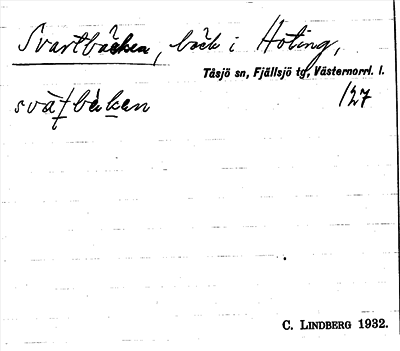 Svartbäcken, bäck i Hoting,
Tåsjö sn, Fjällsjö tg, Västernorrl. l.
127
C. LINDBERG 1932.